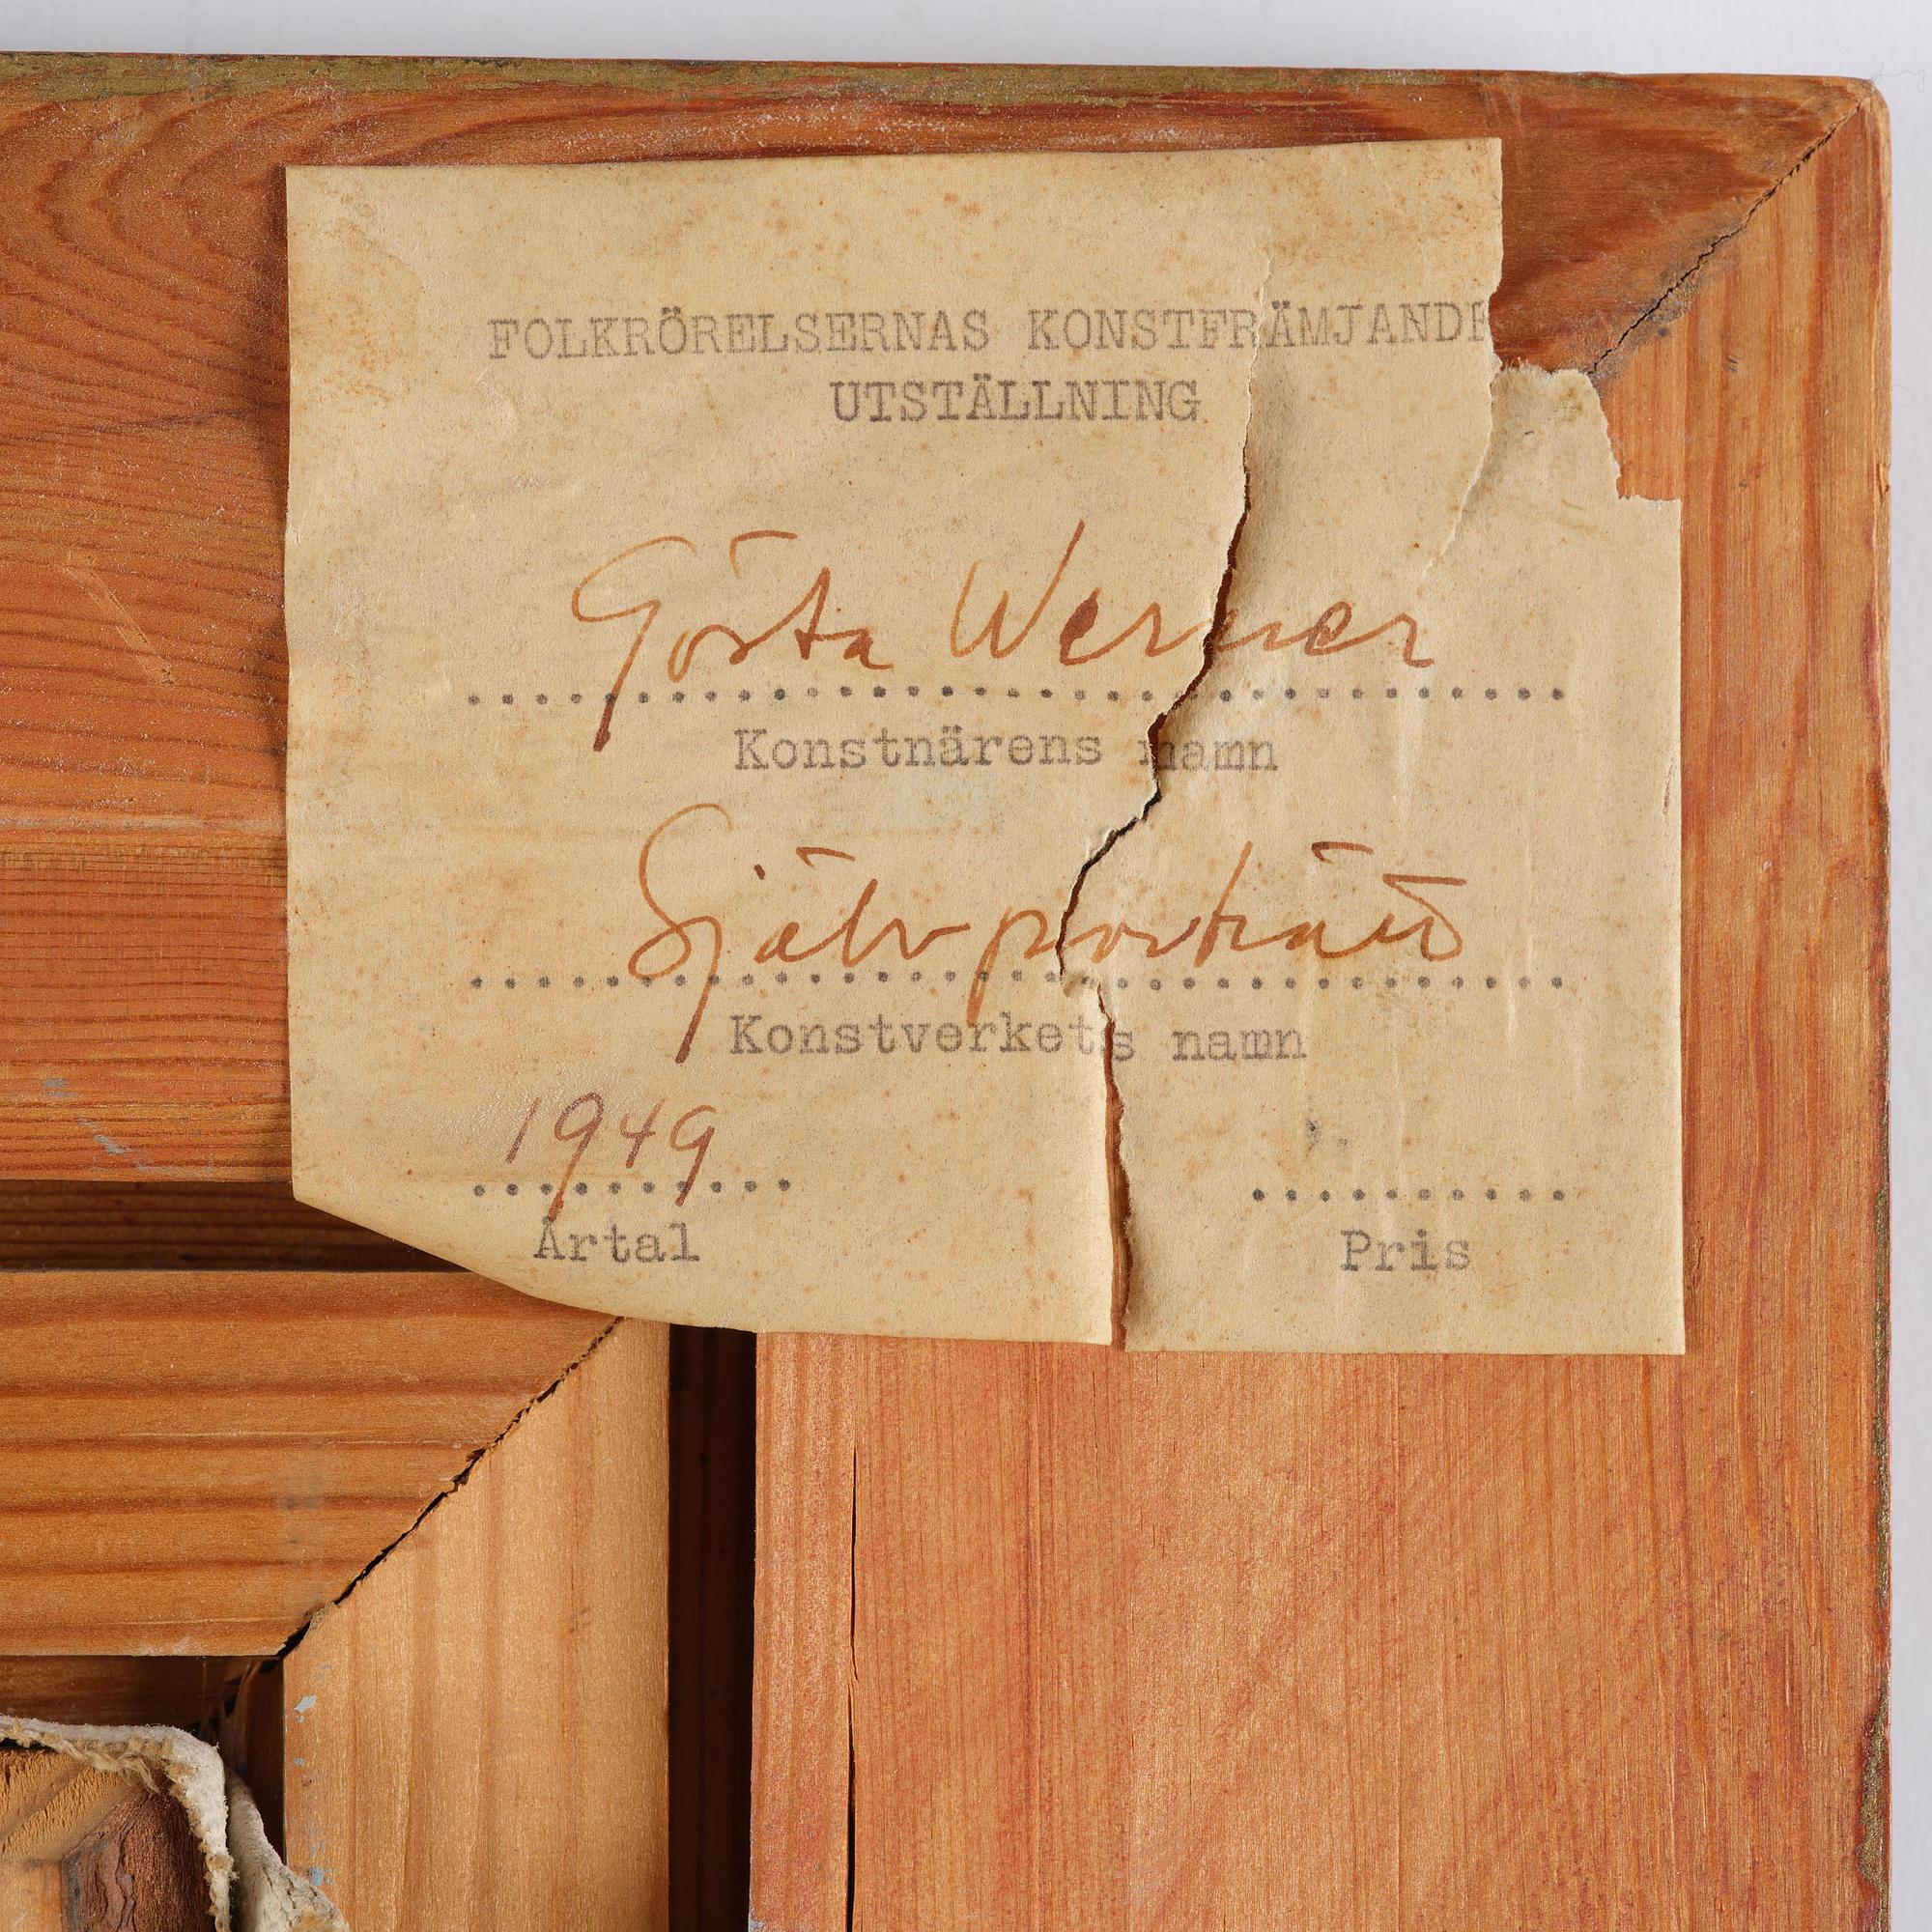 FOLKRÖRELSERNAS KONSTFRÄMJANDE
UTSTÄLLNING
Gösta Werner
Konstnärens namn
Självporträtt
Konstverkets namn
1949
Årtal
Pris